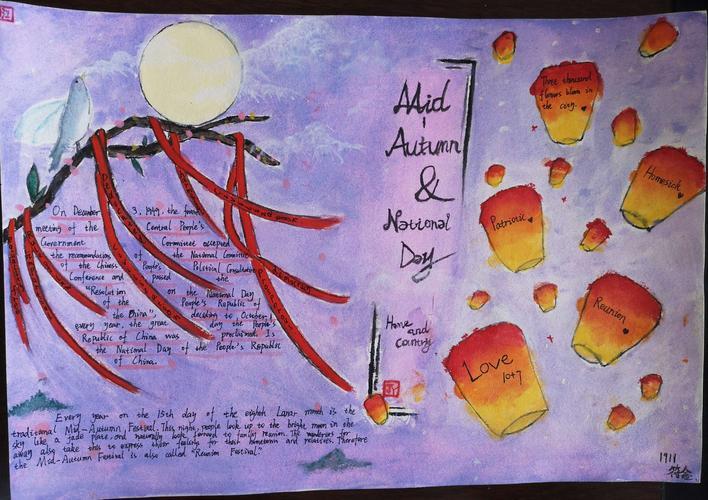 On December 3, 1949, the fourth
meeting of the Central People's
Government Committee accepted
the recommendations of the National Committee
of the Chinese People's Political Consultative
Conference and passed the
"Resolution on the National Day
of the People's Republic of
the China", deciding to October 1
every year, the great day the People's
Republic of China was proclaimed. Is
the National Day of the People's Republic
of China.
Every year on the 15th day of the eighth Lunar month is the
traditional Mid-Autumn Festival. This night, people look up to the bright moon in the
sky like a jade plate, and naturally look forward to family reunion. The wanderers far
away also take this to express their feelings for their hometown and relatives. Therefore
the Mid-Autumn Festival is also called "Reunion Festival".
Mid
-
Autumn
&
National
Day
Home
and
Country
Three thousand
flowers bloom in
the city.
Homesick
Patriotic
Reunion
Love
1911